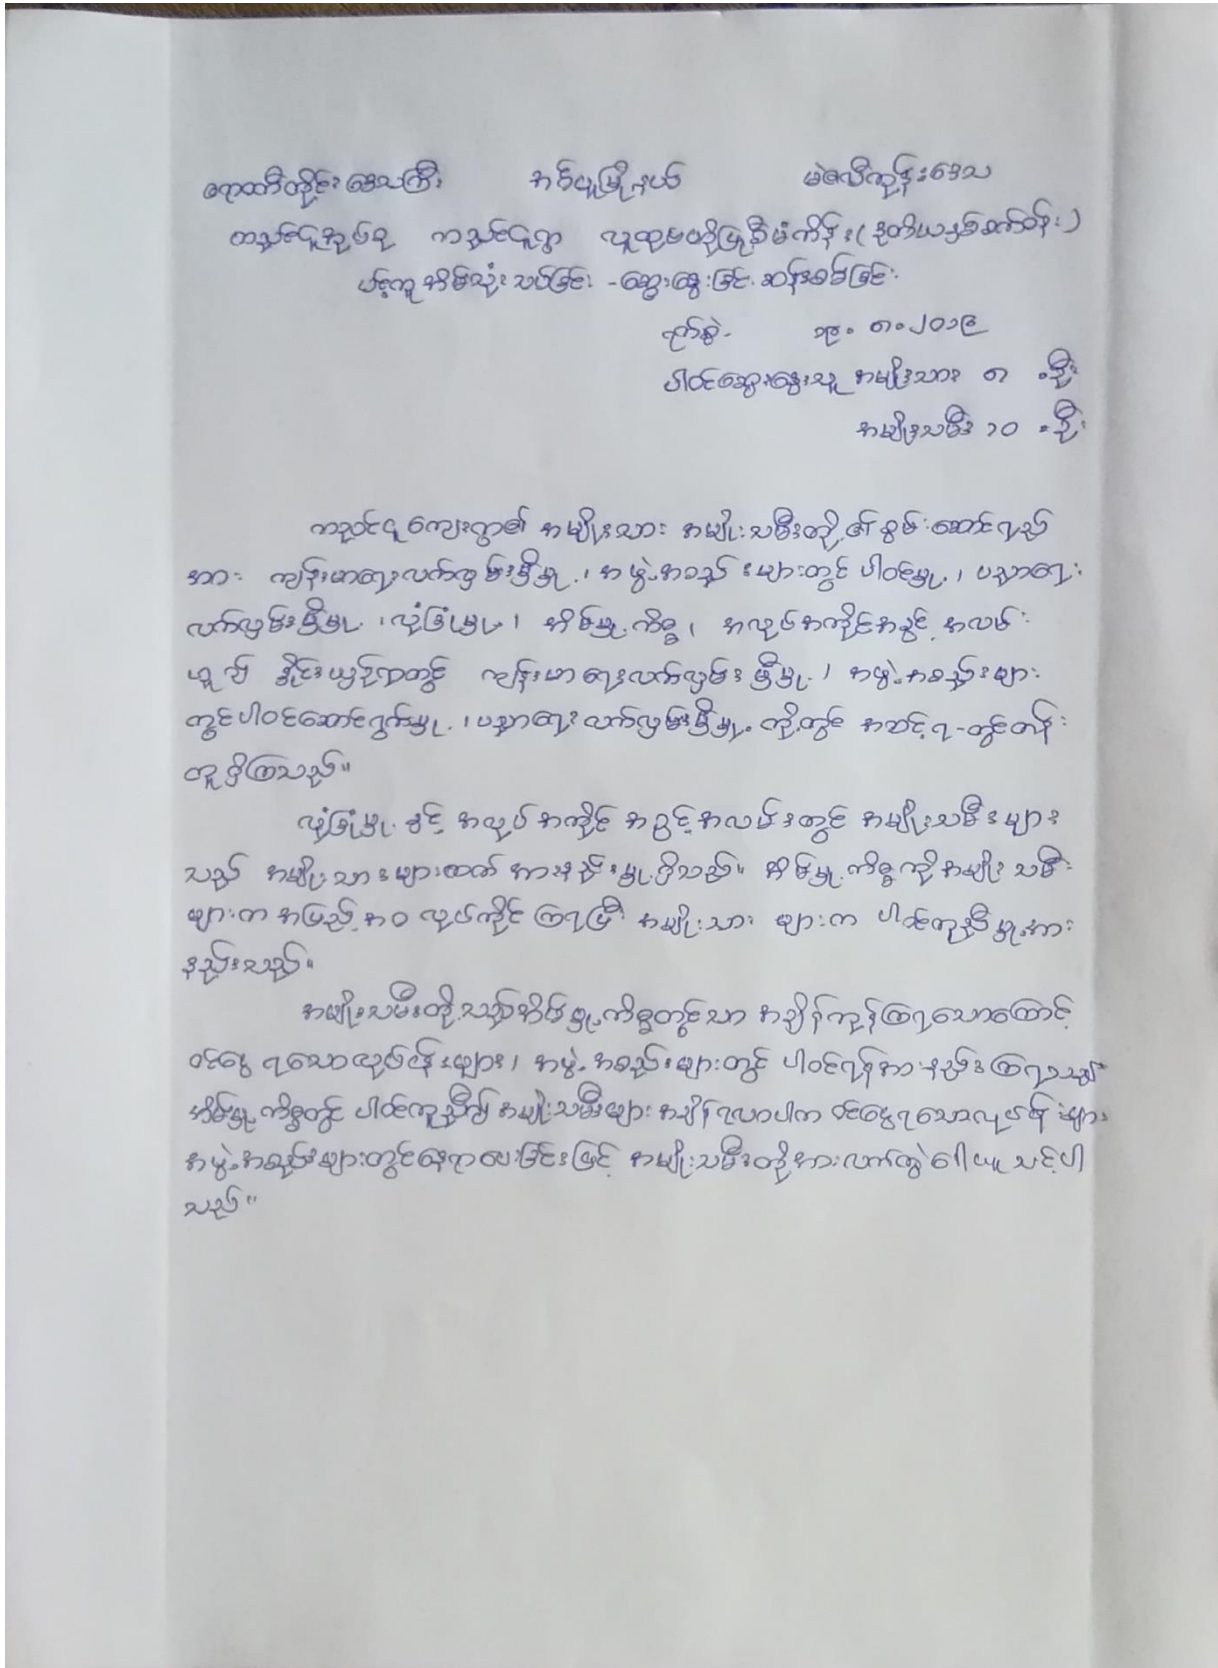 ဧရာဝတီတိုင်းဒေသကြီး အင်္ဂပူမြို့နယ် မဲဇလီကုန်းဒေသ
ကညင်ငူအုပ်စု ကညင်ငူရွာ လူထုဗဟိုပြုစီမံကိန်း (ဒုတိယနှစ်စက်ဝန်း)
ပင့်ကူအိမ်သုံးသပ်ခြင်း - ဆွေးနွေးခြင်း ဆန်းစစ်ခြင်း
ရက်စွဲ- ၁၉.၈.၂၀၁၉
ပါဝင်ဆွေးနွေးသူ အမျိုးသား ၈ -ဦး
အမျိုးသမီး ၁၀ -ဦး
ကညင်ငူကျေးရွာ၏ အမျိုးသား အမျိုးသမီးတို့၏စွမ်းဆောင်ရည်
အား ကျန်းမာရေးလက်လှမ်းမှီမှု၊ အဖွဲ့အစည်းများတွင်ပါဝင်မှု၊ ပညာရေး
လက်လှမ်းမှီမှု၊ လုံခြုံမှု၊ အိမ်မှုကိစ္စ၊ အလုပ်အကိုင်အခွင့်အလမ်း
ဟူ၍ နှိုင်းယှဉ်ရာတွင် ကျန်းမာရေးလက်လှမ်းမှီမှု၊ အဖွဲ့အစည်းများ
တွင်ပါဝင်ဆောင်ရွက်မှု၊ ပညာရေးလက်လှမ်းမှီမှု တို့တွင် အဆင့် ၇-တွင်တန်း
တူရှိကြသည်။
လုံခြုံမှု နှင့် အလုပ်အကိုင် အခွင့်အလမ်းတွင် အမျိုးသမီးများ
သည် အမျိုးသားများထက် အားနည်းမှုရှိသည်။ အိမ်မှုကိစ္စကို အမျိုးသမီး
များက အပြည့်အဝ လုပ်ကိုင်ကြရပြီး အမျိုးသား များက ပါဝင်ကူညီမှုအား
နည်းသည်။
အမျိုးသမီးတို့သည်အိမ်မှုကိစ္စတွင်သာ အချိန်ကုန်ကြရသောကြောင့်
ဝင်ငွေ ရသောလုပ်ငန်းများ၊ အဖွဲ့အစည်းများတွင် ပါဝင်ရန်အားနည်းကြရသည်
အိမ်မှုကိစ္စတွင် ပါဝင်ကူညီ၍ အမျိုးသမီးများ အချိန်ရလာပါက ဝင်ငွေရသောလုပ်ငန်းများ
အဖွဲ့အစည်းများတွင်နေရာပေးခြင်းဖြင့် အမျိုးသမီးတို့အားလက်တွဲခေါ်ယူသင့်ပါ
သည်။